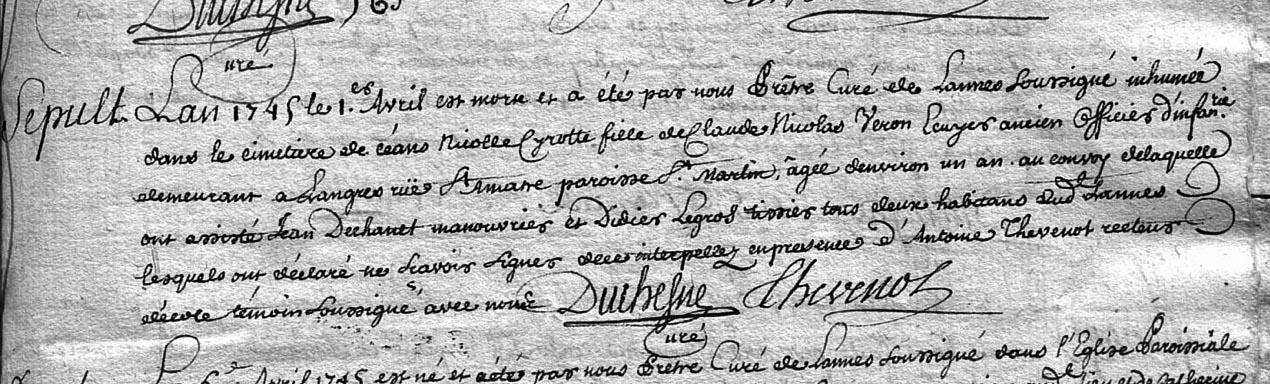 Duchesne
curé
Sepult. Lan 1745 le 1.er Avril est morte et a été par nous Prêtre Curé de Lannes soussigné inhumée
dans le cimetière de céans Nicolle Cyrotte fille de Claude Nicolas Veron Ecuyer ancien Officier d'infan.rie
demeurant a Langres rüe St. Amatre paroisse St. Martin, âgée denviron un an. au convoy delaquelle
ont assisté Jean Dechanet manouvrier et Didier Legros tissier tous deux habitans dud. Lannes
lesquels ont déclaré ne scavoir signer de ce interpellez en presence d'Antoine Thevenot recteur
décole témoin soussigné avec nous Duchesne Thevenot
curé
Avril 1745 est né et a été par nous Prêtre Curé de Lannes soussigné dans l'Eglise Paroissiale
de Catherine